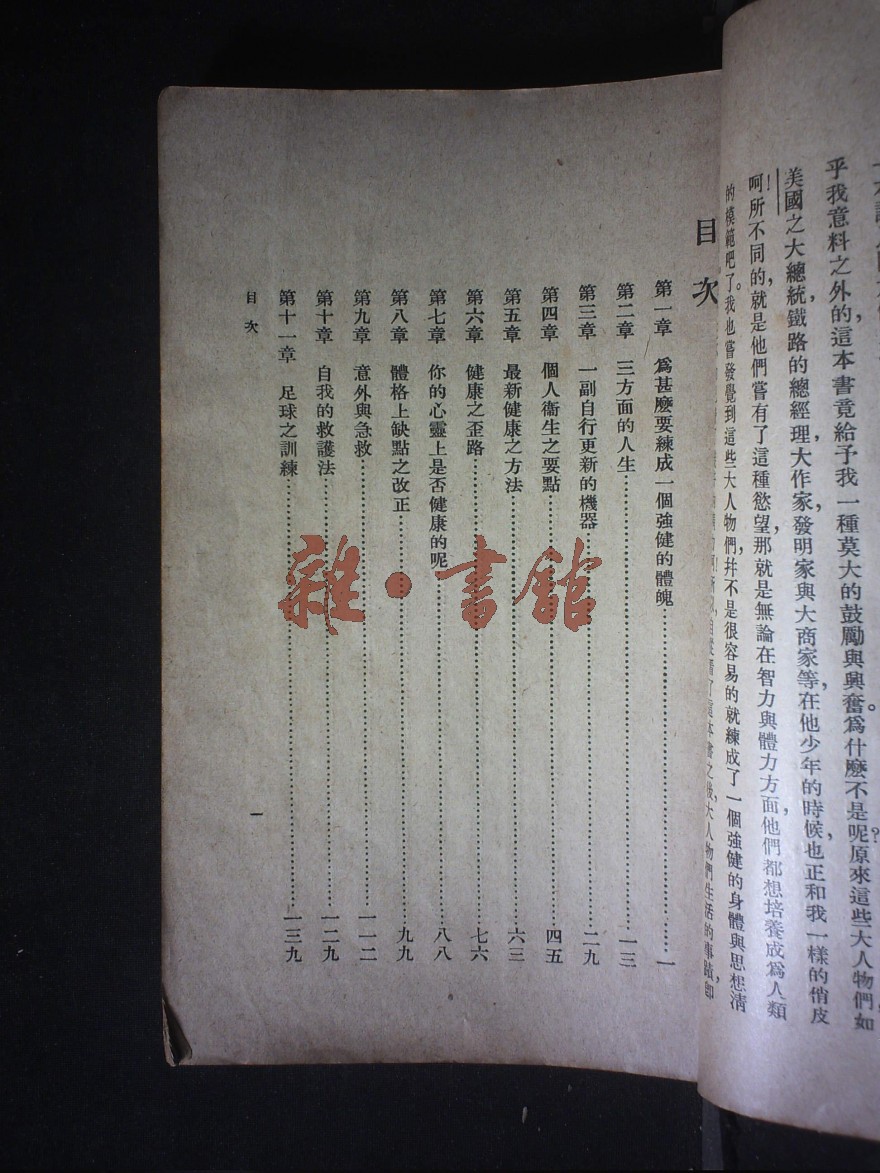 乎我意料之外的，這本書竟給予我一種莫大的鼓勵與興奮。爲什麼不是呢？原來這些大人物們，如
美國之大總統，鐵路的總經理，大作家，發明家，與大商家等，在他少年的時候，也正和我一樣的俏皮
！呵，所不同的，就是他們嘗有了這種慾望，那就是無論在智力與體力方面，他們都想培養成爲人類
的模範吧了。我也嘗發覺到這些大人物們，并不是很容易的就練成了一個強健的身體與思想清
大人物們生活的事蹟，即
目次
第一章　爲甚麽要練成一個強健的體魄……一
第二章　三方面的人生……一三
第三章　一副自行更新的機器……二九
第四章　個人衞生之要點……四五
第五章　最新健康之方法……六三
第六章　健康之歪路……七六
第七章　你的心靈上是否健康的呢……八八
第八章　體格上缺點之改正……九九
第九章　意外與急救……一一二
第十章　自我的救護法……一二九
第十一章　足球之訓練……一三九
目次
一
雜·書館